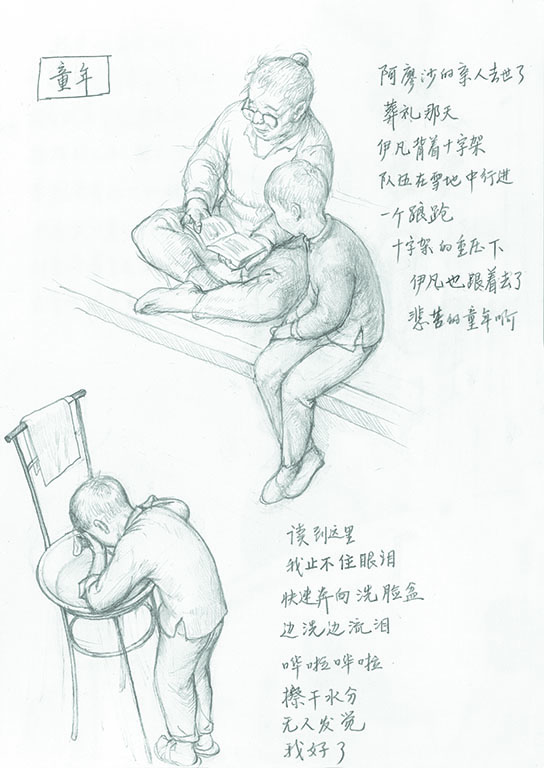 童年
阿廖沙的亲人去世了
葬礼那天
伊凡背着十字架
队伍在雪地中行进
一个踉跄
十字架的重压下
伊凡也跟着去了
悲苦的童年啊
读到这里
我止不住眼泪
快速奔向洗脸盆
边洗边流泪
哗啦哗啦
擦干水分
无人发觉
我好了